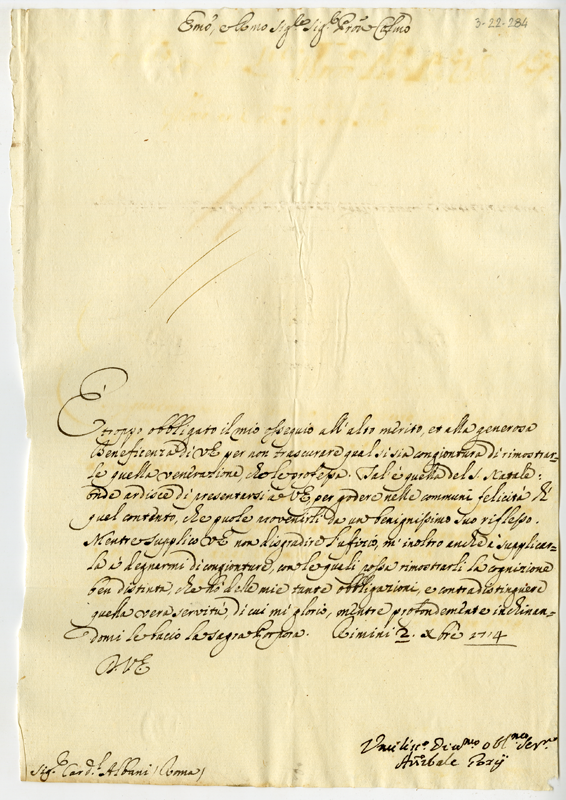 3-22-284
Emo, e Rmo Sigre Sigre Prone Colmo
È troppo obbligato il mio ossequio all'alto merito, et alla generosa
Beneficenza di V.E. per non trascurare qual si sia congiontura di rimostrar-
le quella venerazione, che le professa. Tal è quella del S. Natale:
onde ardisce di presentarsi a V.E. per godere nelle communi felicità di
quel contento, che puole provenirli da un benignissimo suo riflesso.
Mentre supplico V.E. non disgradire l'ufizio, m'inoltro anche à supplicar-
la à degnarmi di congionture, con le quali possa rimostrarli la cognizione
ben distinta, che hò delle mie tante obbligazioni, e contradistinguere
quella vera servitù, di cui mi glorio, mentre profondamente inchinan-
domi le bacio la sagra Porpora. Rimini 2. Xbre 1714
D. V.E.
Umiliss.o Div.mo Obl.mo Ser.re
Annibale
Sig.r Card.l Albani (Roma)